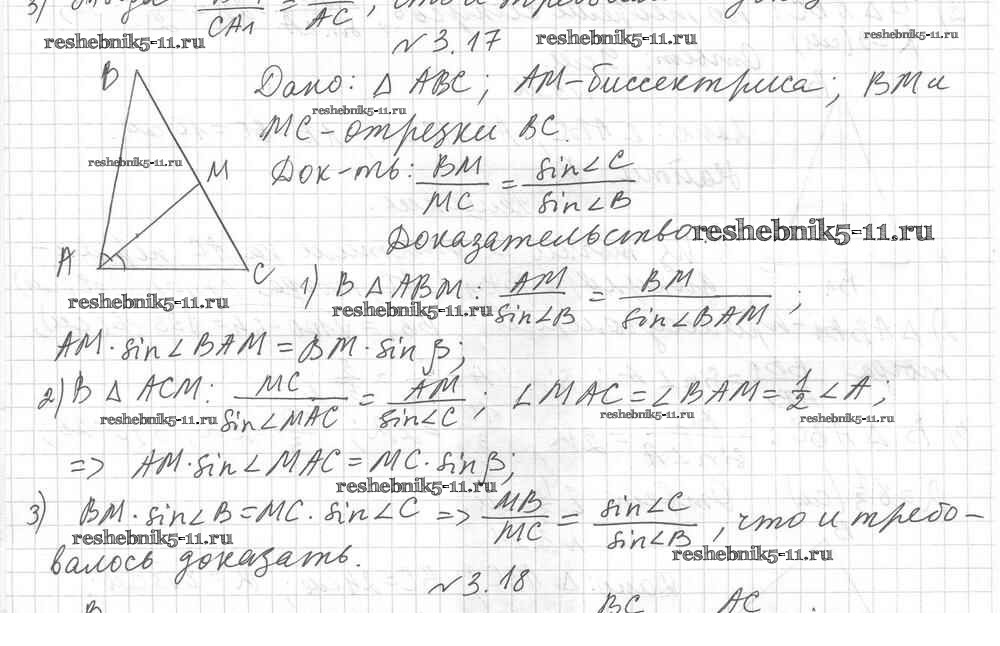 3) CA1 = AC, что и требовалось
reshebnik5-11.ru reshebnik5-11.ru reshebnik5-11.ru
№3.17
B
Дано: △ ABC; AM-биссектриса; BM и
reshebnik5-11.ru
MC-отрезки BC.
reshebnik5-11.ru
M
Док-ть: BM/MC = sin∠C/sin∠B
Доказательство: reshebnik5-11.ru
A C
reshebnik5-11.ru
1) В △ ABM: AM/sin∠B = BM/sin∠BAM;
reshebnik5-11.ru
AM·sin∠BAM = BM·sin β;
2) В △ ACM: MC/sin∠MAC = AM/sin∠C; ∠MAC = ∠BAM = 1/2 ∠A;
reshebnik5-11.ru reshebnik5-11.ru reshebnik5-11.ru
=> AM·sin∠MAC = MC·sin β;
reshebnik5-11.ru
3) BM·sin∠B = MC·sin∠C => MB/MC = sin∠C/sin∠B, что и требо-
reshebnik5-11.ru reshebnik5-11.ru
валось доказать.
№3.18
B BC AC